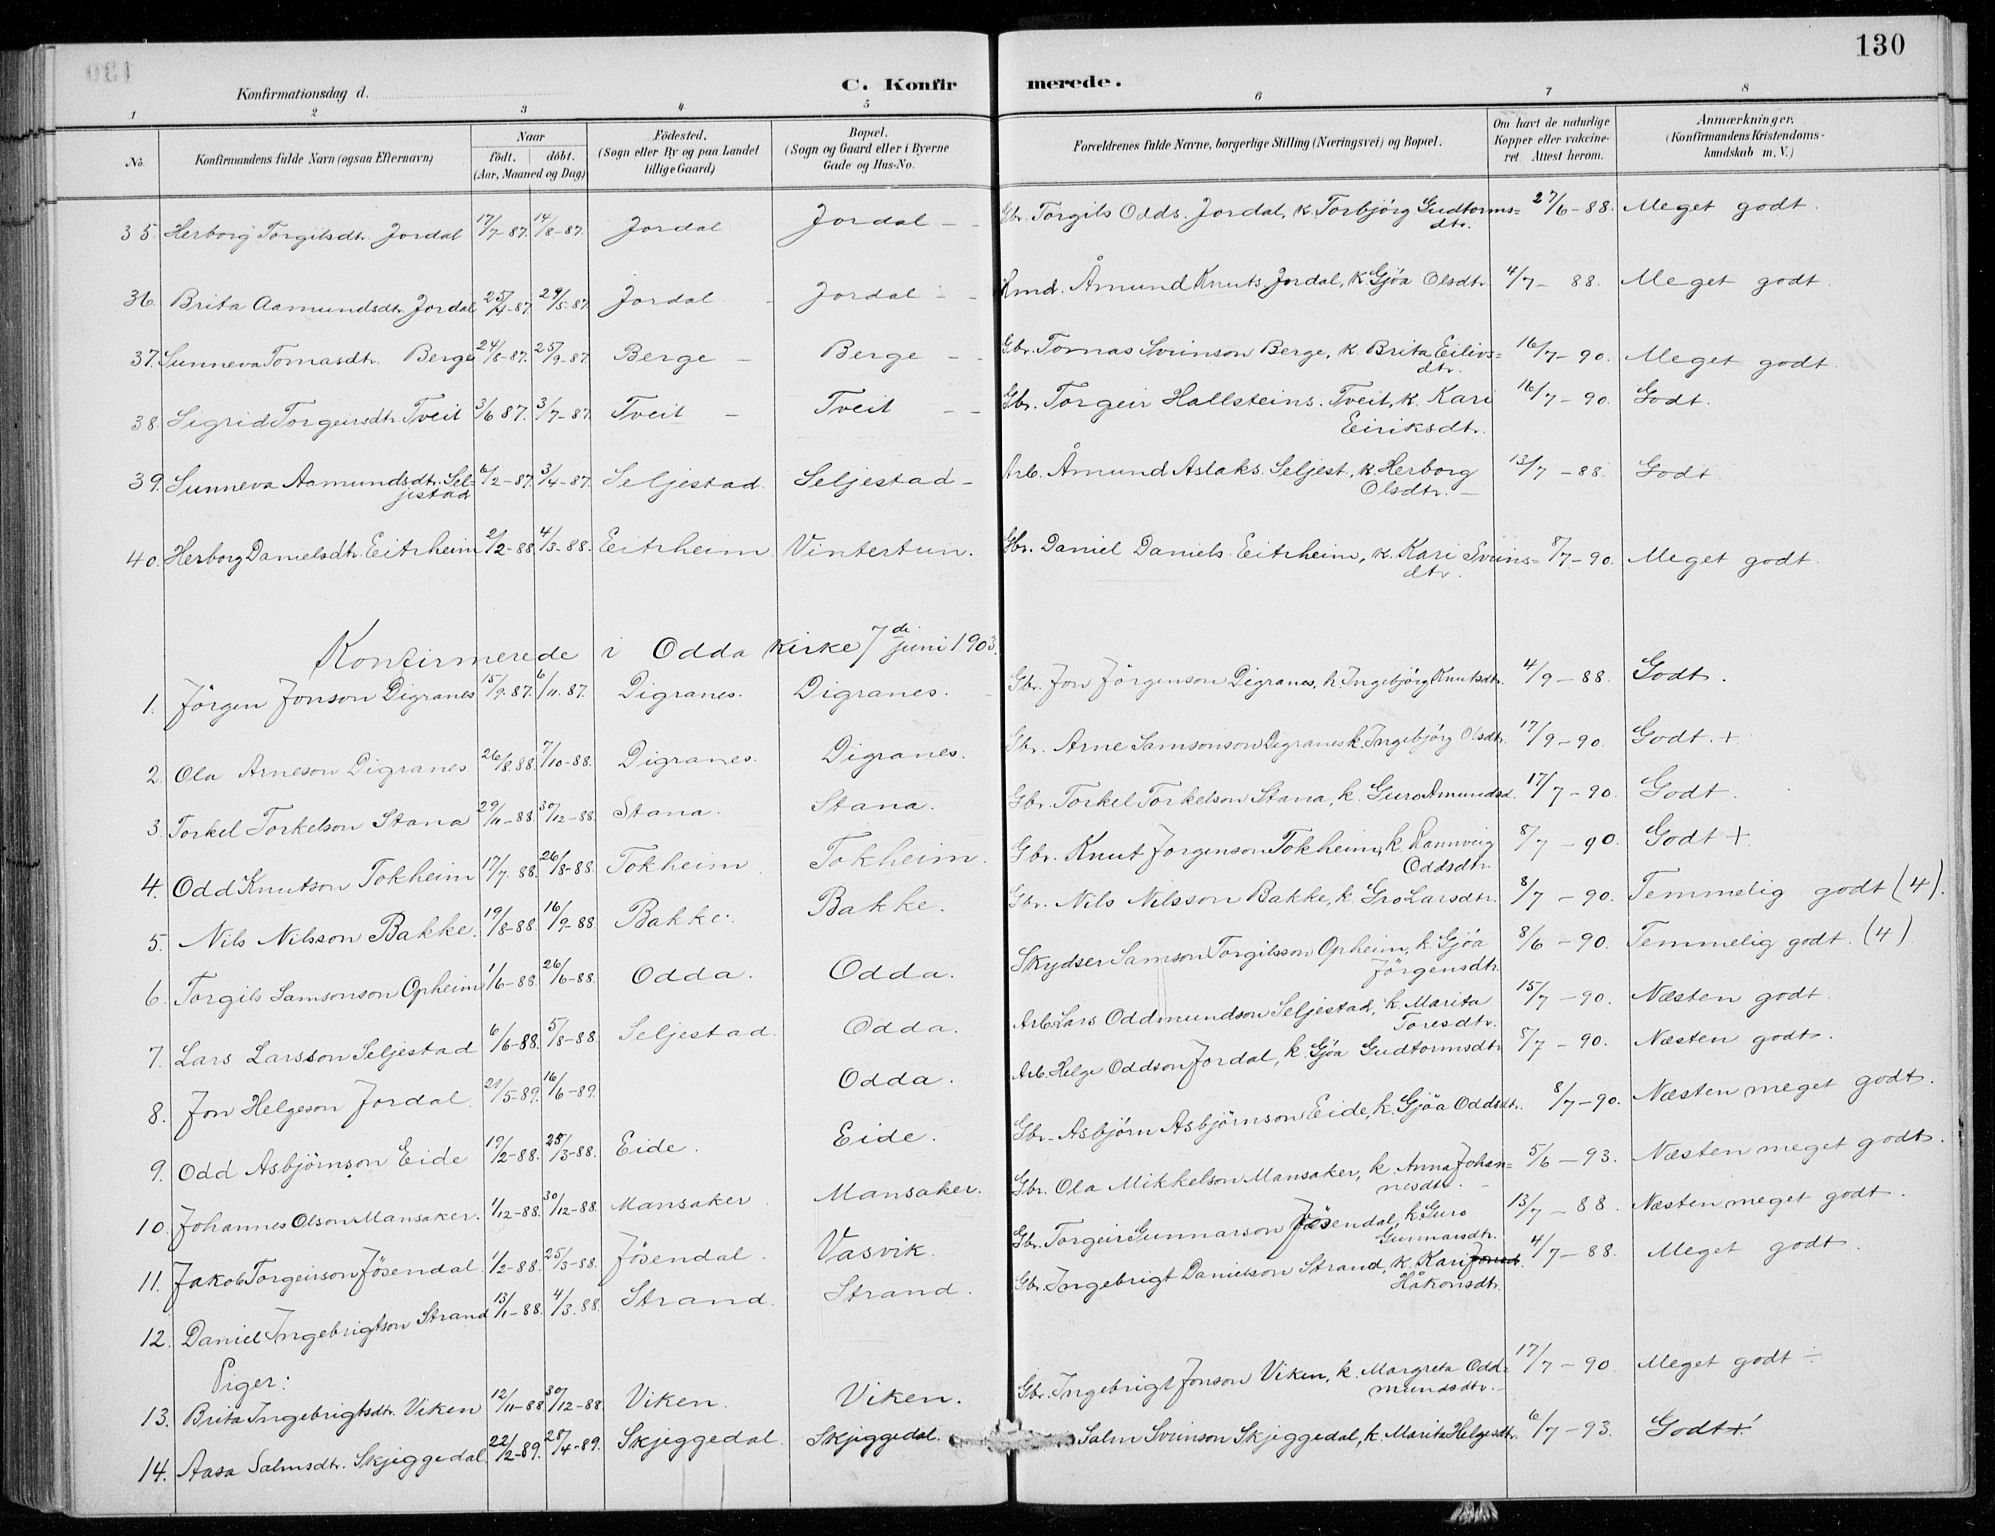 130
C. Konfirmerede.
Konfirmationsdag d.
1 2 3 4 5 6 7 8
No. Konfirmandens fulde Navn (ogsaa Efternavn) Naar födt. döbt. (Aar, Maaned og Dag) Födested. (Sogn eller By og paa Landet tillige Gaard) Bopæl. (Sogn og Gaard eller i Byerne Gade og Hus-No. Forældrenes fulde Navne, borgerlige Stilling (Næringsvei) og Bopæl. Om havt de naturlige Kopper eller vakcineret. Attest herom. Anmærkninger. (Konfirmandens Kristendomskundskab m. V.)
35. Herborg Torgilsdtr. Jordal 17/7-87. 14/8-87. Jordal Jordal - - Gbr. Torgils Odds. Jordal, k. Torbjörg Gudtorms=dtr. 27/6-88. Meget godt.
36. Brita Aamundsdtr. Jordal 25/4-87. 29/5-87 Jordal - Jordal - - Hmd. Åmund Knuts. Jordal, k. Gjöa Olsdtr. 4/7- 88. Meget godt.
37. Sunneva Tomasdtr. Berge 24/8-87. 25/9-87. Berge - Berge - - Gbr. Tomas Sveinson Berge, k. Brita Eilivs=dtr. 16/7-90. Meget godt.
38. Sigrid Torgeirsdtr. Tveit 3/6 87. 3/7-87. Tveit - Tveit - - Gbr. Torgeir Hallsteins. Tveit, k. Kari Eiriksdtr. 16/7-90. Godt.
39. Sunneva Aamundsdtr. Seljestad 6/2-87. 3/4-87. Seljestad. Seljestad - Arb. Åmund Aslaks. Seljest., k. Herborg Olsdtr. - 13/7-88. Godt
40. Herborg Danielsdtr. Eitrheim 2/2-88. 4/3-88. Eitrheim. Vintertun. Gbr. Daniel Daniels. Eitrheim, k. Kari Sveins=dtr. 8/7-90. Meget godt.
Konfirmerede i Odda kirke 7de juni 1903.
1. Jörgen Jonson Digranes 15/9.87. 6/11.87. Digranes. Digranes. - Gbr. Jon Jörgenson Digranes, k. Ingebjörg Knutsdtr. 4/9-88. Godt.
2. Ola Arneson Digranes 26/8.88. 7/10-88. Digranes. Digranes. Gbr. Arne Samsonson Digranes k. Ingebjörg Olsdtr. 17/9-90. Godt +
3. Torkel Torkelson Stana 29/11-88. 30/12-88. Stana. Stana. Gbr. Torkel Torkelson Stana, k. Guro Amundsd. 17/7-90. Godt.
4. Odd Knutson Tokheim 17/7 88. 26/8-88. Tokheim Tokheim. Gbr. Knut Jorgenson Tokheim, k. Rannveig Oddsdtr. 8/7-90. Godt +
5. Nils Nilsson Bakke. 19/8-88. 16/9-88 Bakke. Bakke. Gbr. Nils Nilsson Bakke, k. Gro Larsdtr. 8/7-90. Temmelig godt (4).
6. Torgils Samsonson Opheim 1/6-88. 26/6-88. Odda. Odda. Skydser Samson Torgilsson Opheim, k. Gjöa Jörgensdtr. 8/6-90. Temmelig godt. (4)
7. Lars Larsson Seljestad 6/6-88. 5/8-88. Seljestad. Odda. Arb. Lars Oddmundson Seljestad, k. Marita Toresdtr. 15/7-90. Næsten godt.
8. Jon Helgeson Jordal. 21/5-89. 16/6-89. Odda. Arb. Helge Oddson Jordal, k. Gjöa Gudtormsdtr 8/7-90. Næsten godt.
9. Odd Asbjörnson Eide 19/2-88. 25/3-88. Eide. Eide. Gbr. Asbjörn Asbjörnson Eide, k. Gjöa Oddsdtr. 8/7-90. Næsten meget godt.
10. Johannes Olson Mansaker. 1/12-88. 30/12-88. Mansaker Mansaker. Gbr. Ola Mikkelson Mansaker, k. Anna Johan=nesdtr. - 5/6-93. Næsten meget godt.
11. Jakob Torgeirson Jösendal. 1/2-88. 25/3-88. Jösendal. Vasvik. Gbr. Torgeir Gunnarson Jösendal, k. Guro Gunnarsdtr. 13/7-88. Næsten meget godt.
12. Daniel Ingebrigtson Strand 13/1-88. 4/3.88. Strand. Strand. Gbr. Ingebrigt Danielson Strand, k. Kari Håkonsdtr. 4/7-88. Meget godt.
Piger:
13. Brita Ingebrigtsdtr. Viken 12/11-88 30/12-88. Viken. Viken. Gbr. Ingebrigt Jonson Viken, k. Margreta Odd=mundsdtr. - 17/7-90. Meget godt ÷
14. Aasa Salmsdtr. Skjeggedal. 22/2-89. 28/4-89. Skjeggedal. Skjeggedal. Salm Sveinson Skjeggedal, k. Marita Helgesdtr. 6/7-93. Godt +